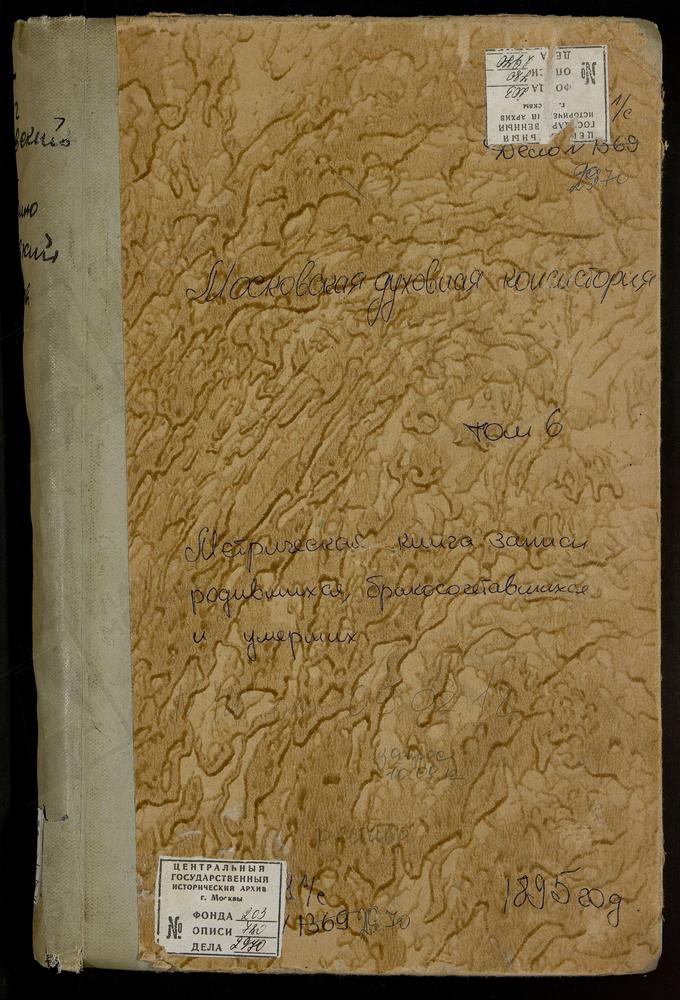 ЦЕНТРАЛЬНЫЙ
ГОСУДАРСТВЕННЫЙ
ИСТОРИЧЕСКИЙ АРХИВ
г. Москвы
ФОНДА 203
ОПИСИ 780
ДЕЛА 2970
Дело № 1369
2970
Московская духовная консистория
том 6
Метрическая книга записи
родившихся, бракосочетавшихся
и умерших
ЦЕНТРАЛЬНЫЙ
ГОСУДАРСТВЕННЫЙ
ИСТОРИЧЕСКИЙ АРХИВ
г. Москвы
№ ФОНДА 203
ОПИСИ 780
ДЕЛА 2970
1369 2970
1895 год